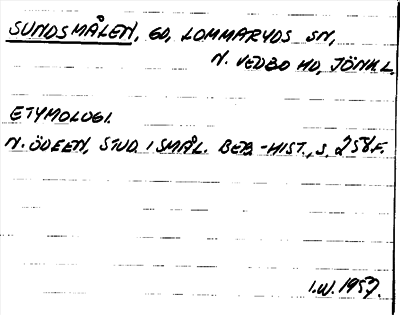 SUNDSMÅLEN, GD, LOMMARYDS SN,
N. VEDBO HD, JÖNK.L.
ETYMOLOGI.
N. ÖDEEN, STUD. I SMÅL. BEB.-HIST., S. 258 F.
I.W. 1957.